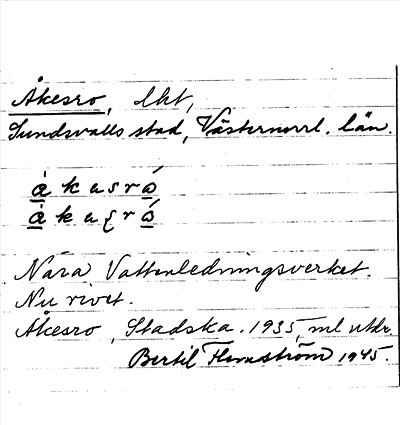 Åkesro, lht,
Sundsvalls stad, Västernorrl. län.
å k a s r ò
å k a ʃ r ò
Nära Vattenledningsverket.
Nu rivet.
Åkesro, Stadska. 1935, ml utdr.
Bertil Flemström 1945.